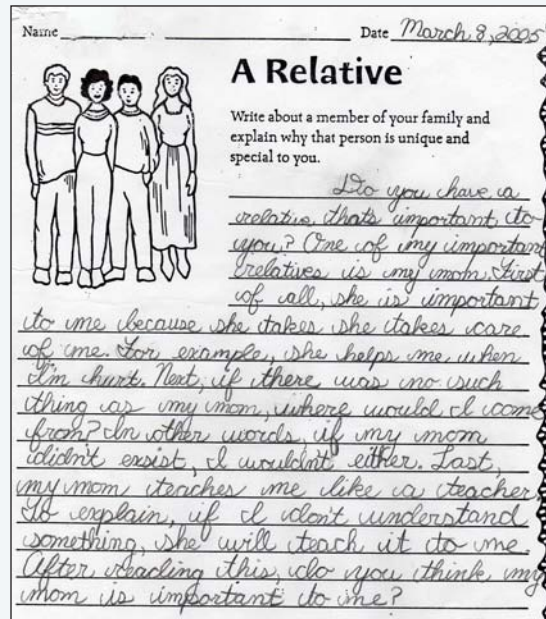 Name Date March 8, 2005
A Relative
Write about a member of your family and
explain why that person is unique and
special to you.
Do you have a
relative thats important to
you? One of my important
relatives is my mom. First
of all, she is important
to me because she takes she takes care
of me. For example, she helps me when
I'm hurt. Next, if there was no such
thing as my mom, where would I come
from? In other words, if my mom
didn't exsist, I wouldn't either. Last,
my mom teaches me like a teacher.
To explain, if I don't understand
something, she will teach it to me.
After reading this, do you think my
mom is important to me?